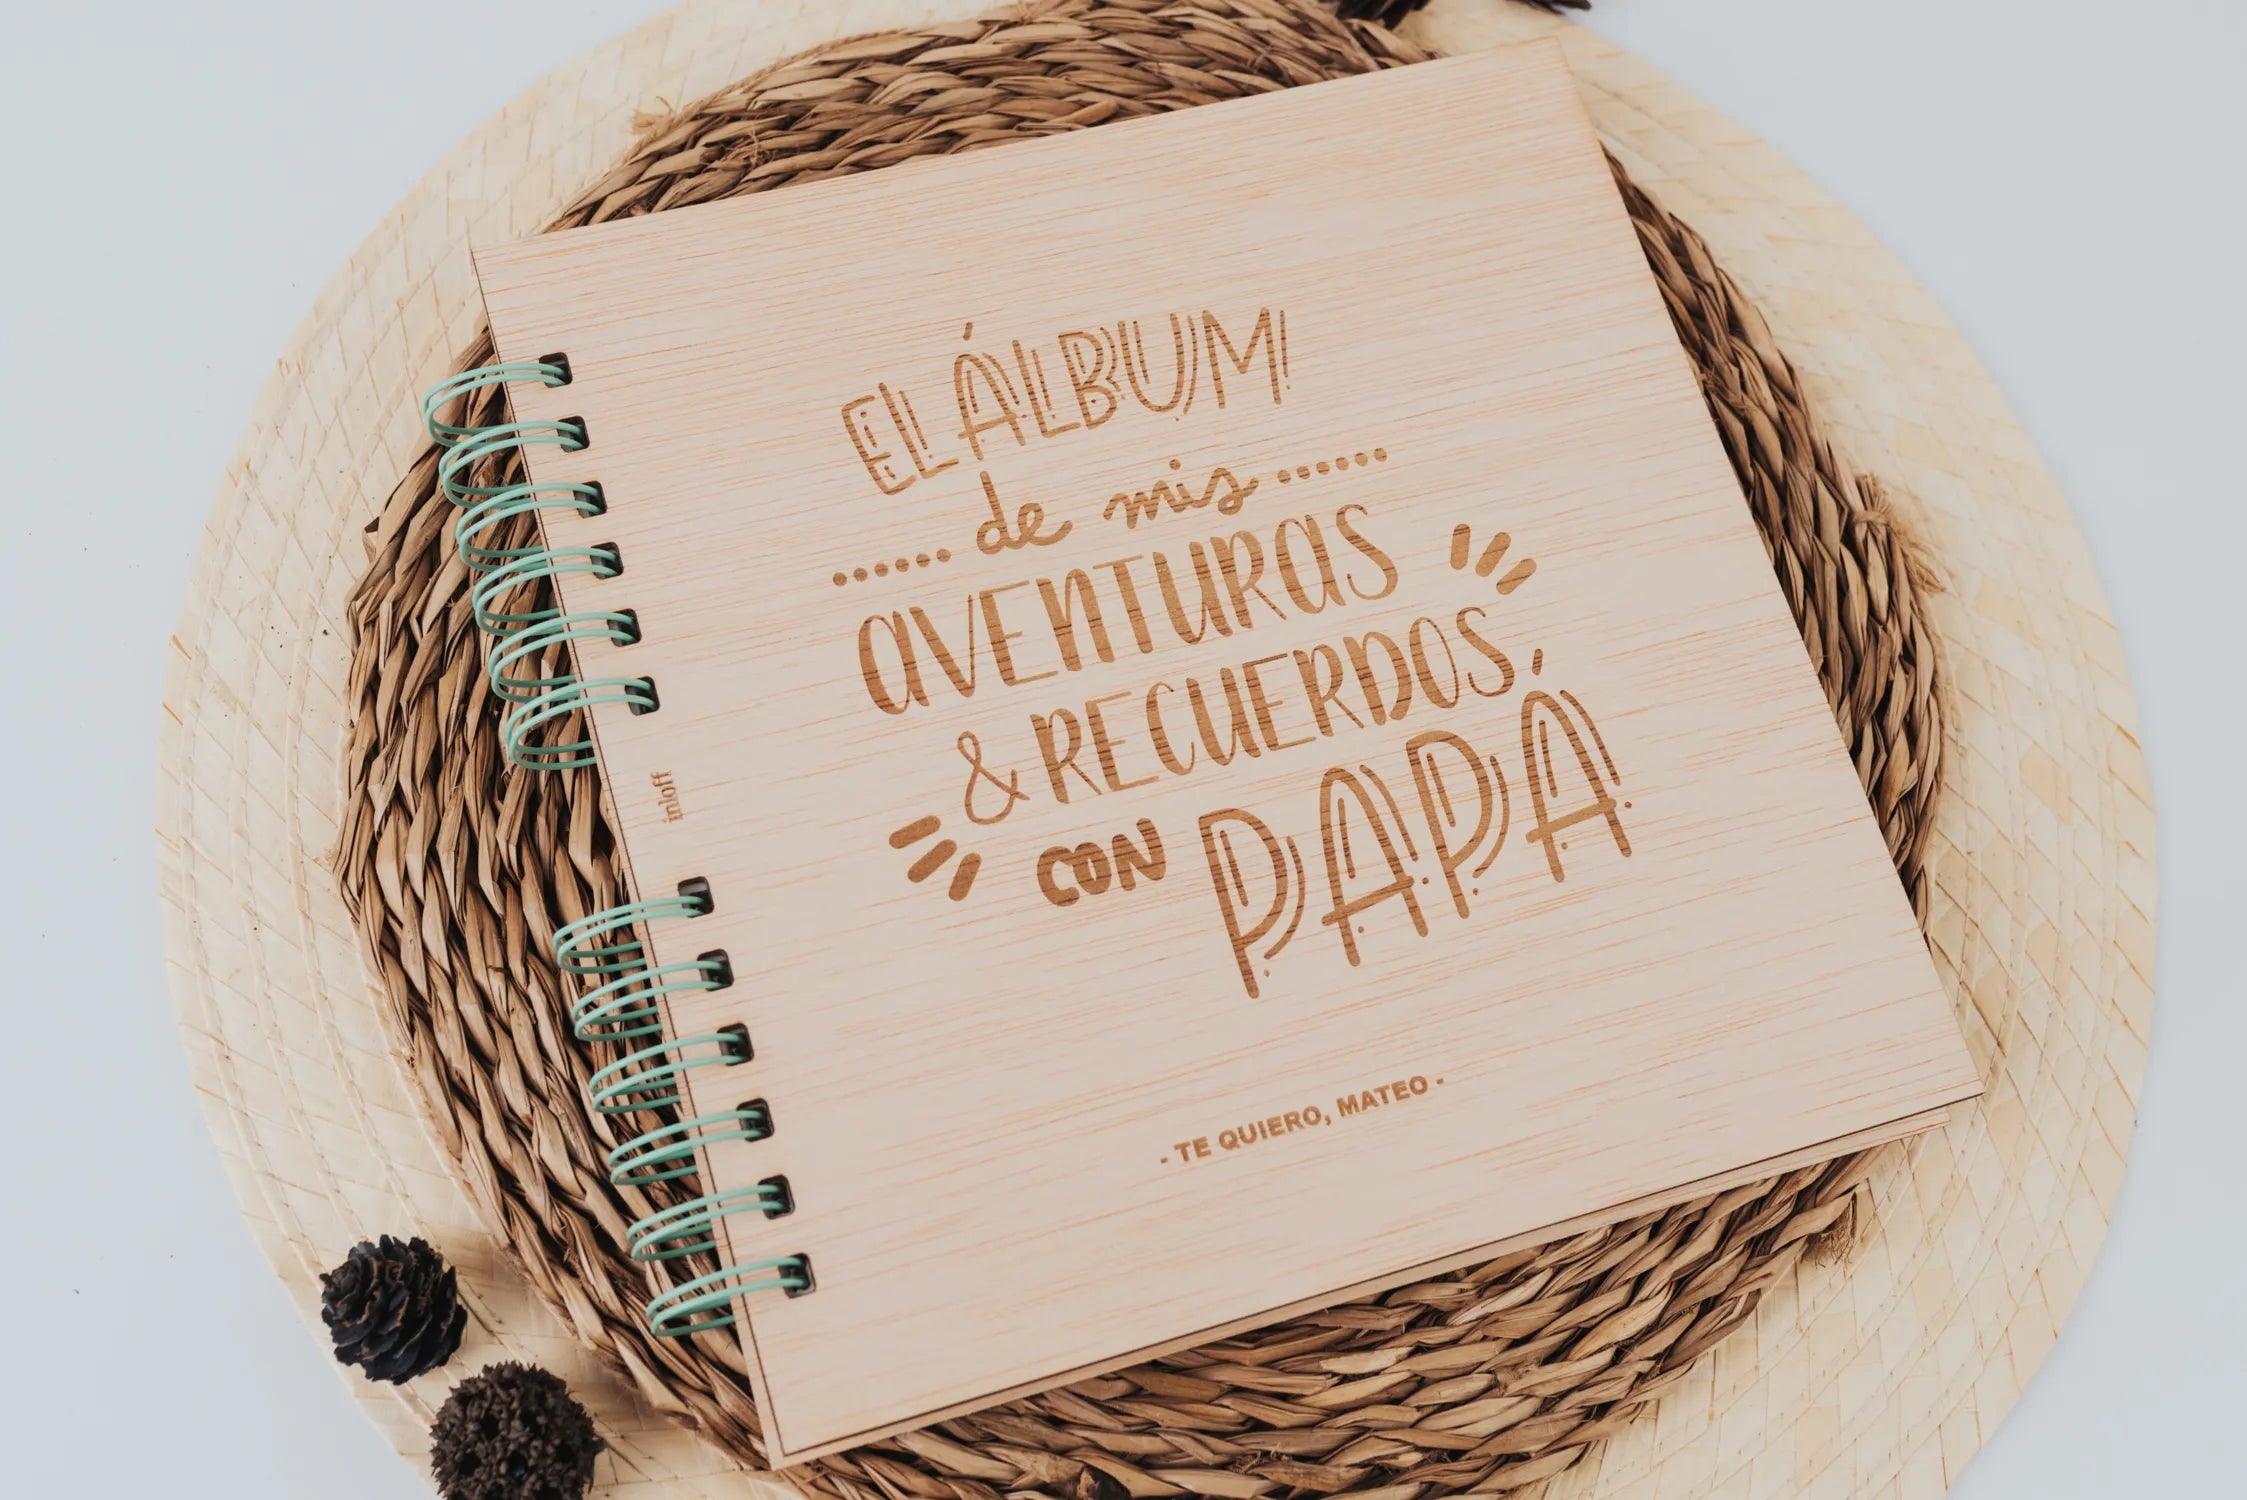 EL ÁLBUM
de mis
AVENTURAS
& RECUERDOS
CON PAPÁ
- TE QUIERO, MATEO -
inloff